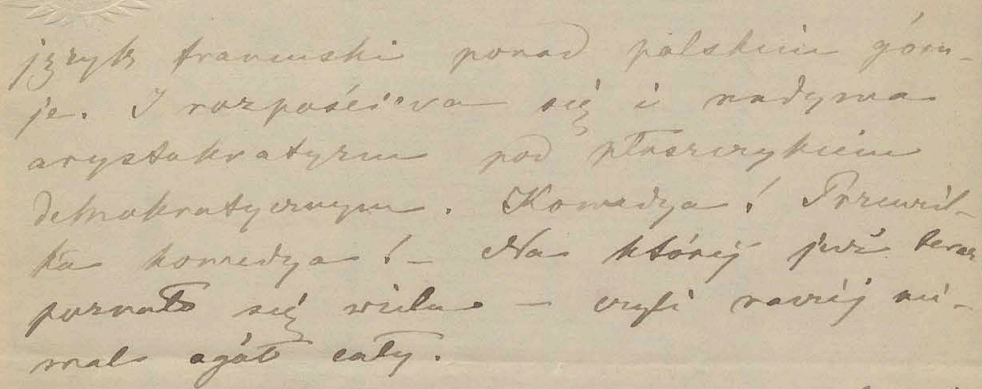 język francuski ponad polskim góru-
je. I rozpościera się i nadyma
arystokratyzm pod płaszczykiem
demokratycznym. Komedya! Przewiel-
ka komedya! – Na której już teraz
poznało się wielu – czyli raczéj nie-
mal ogół cały.